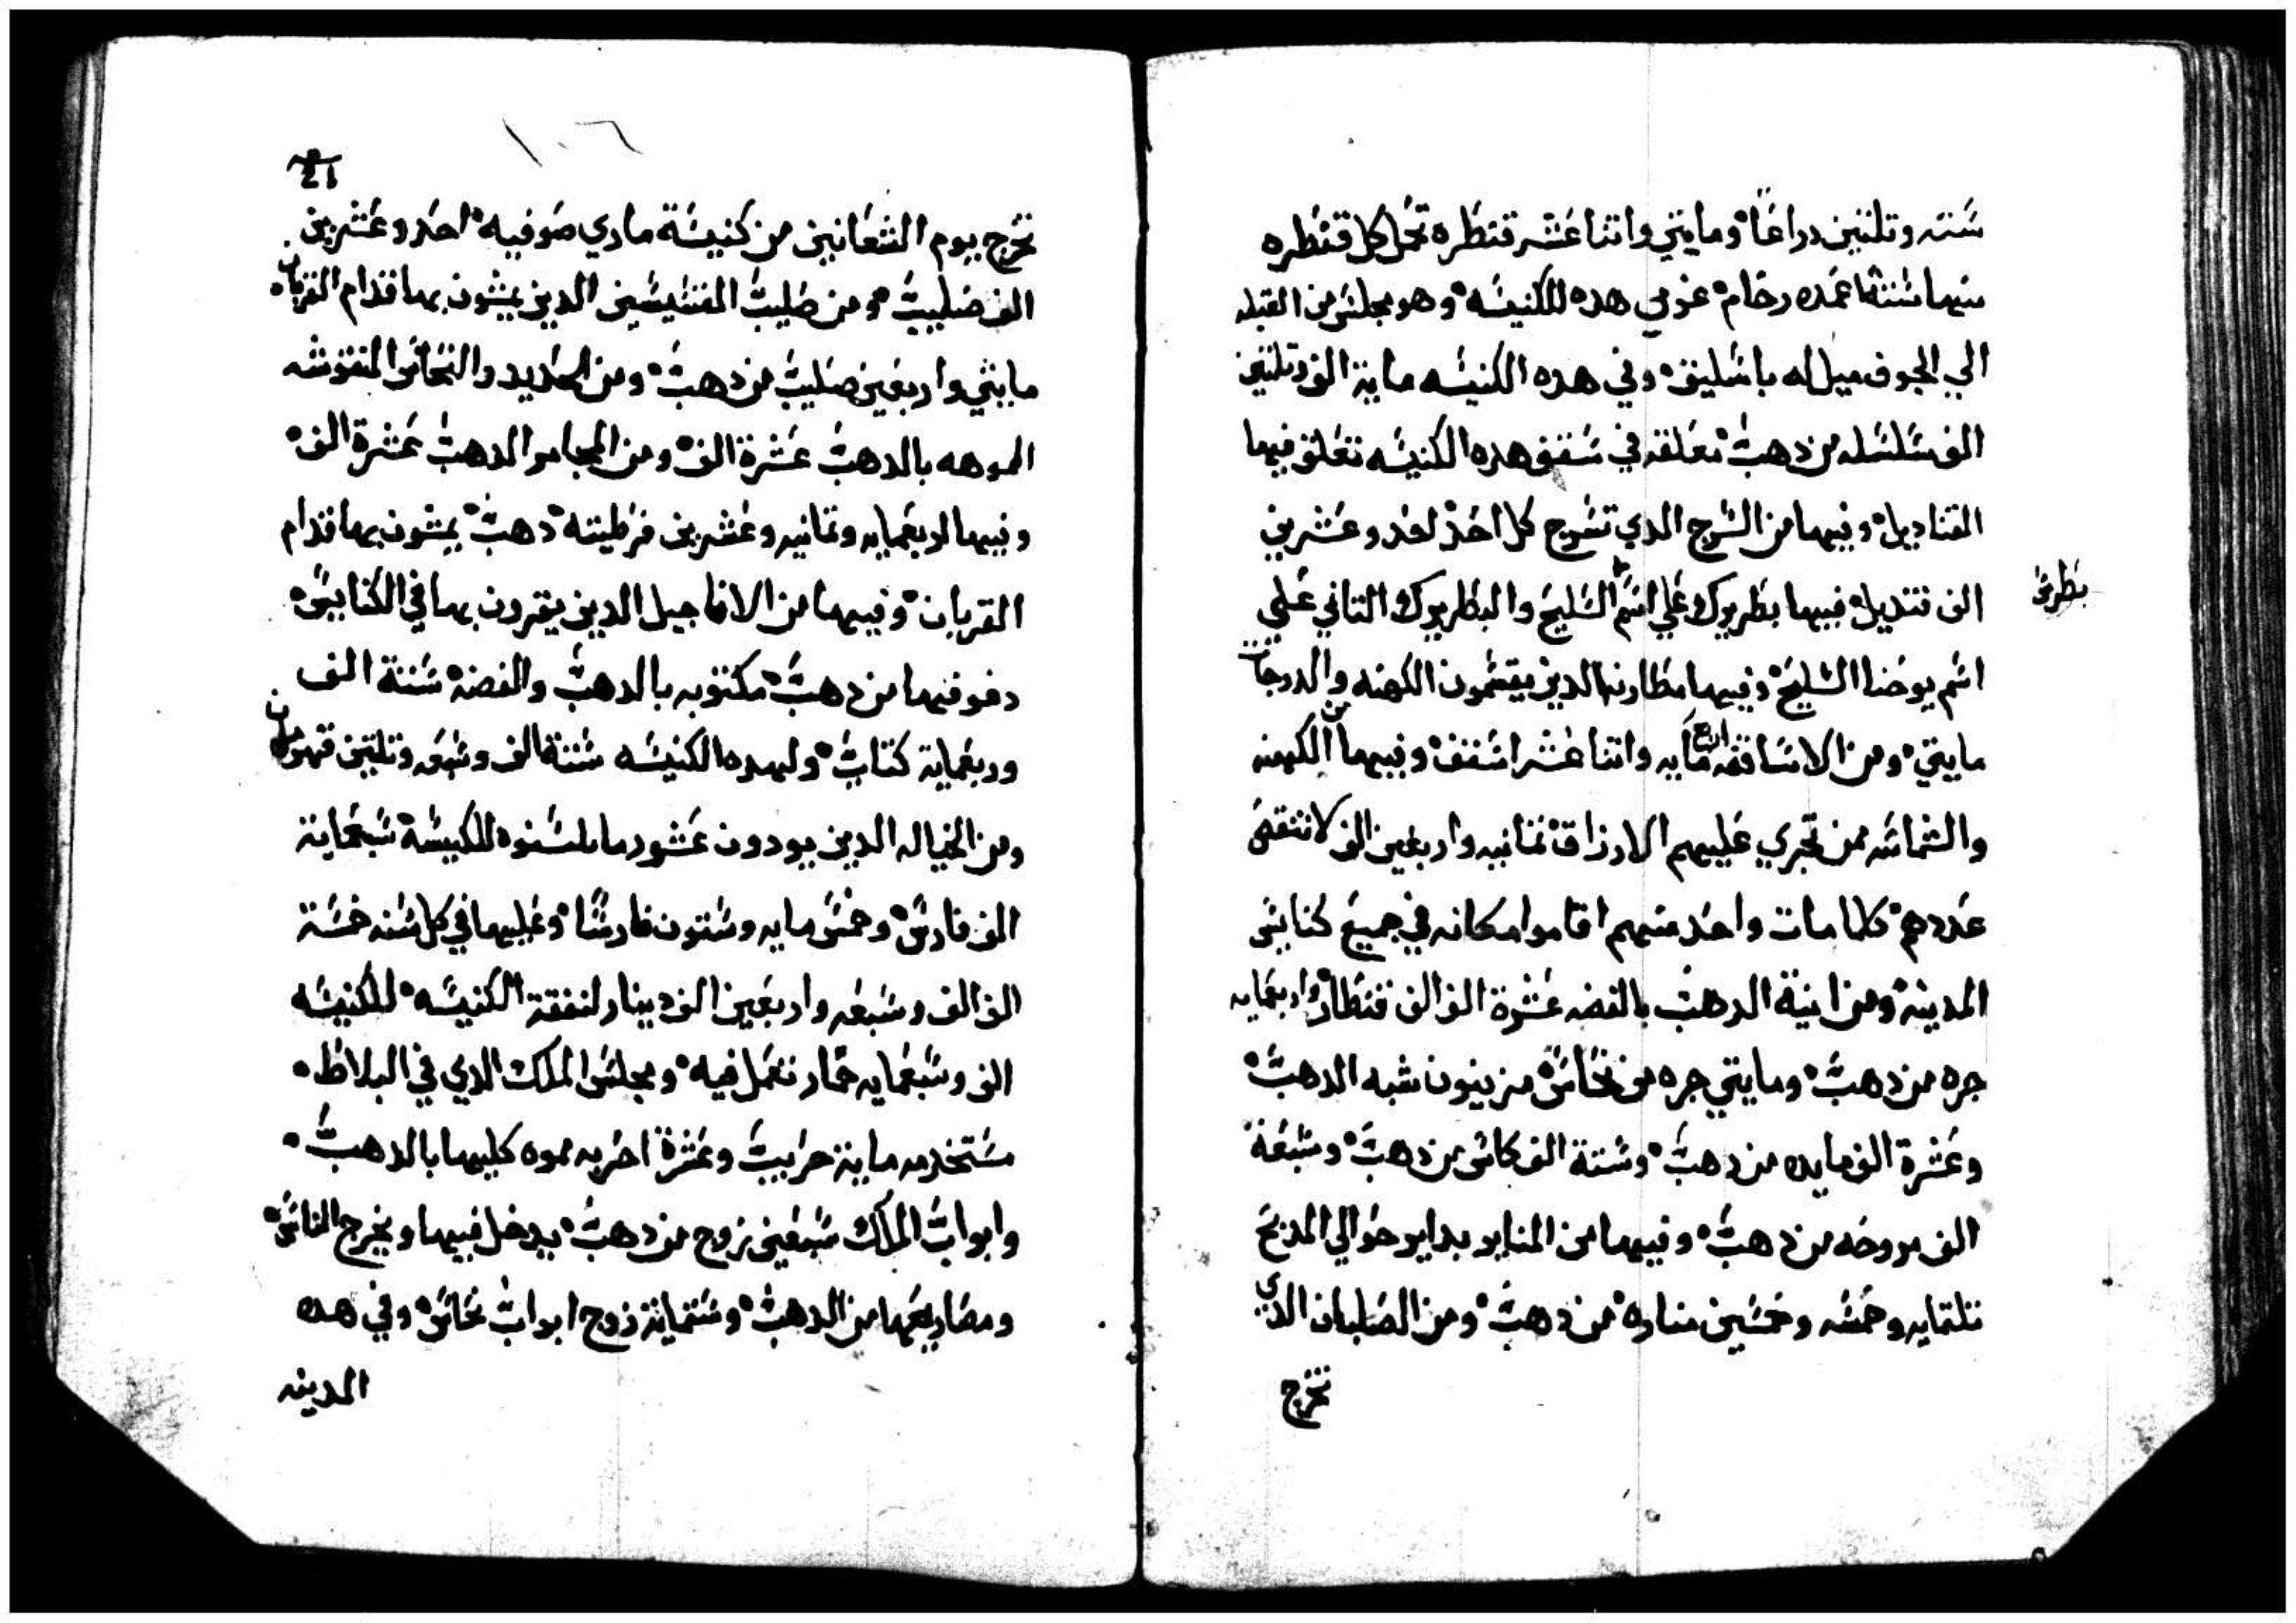 سته وتلتين دراعًا ومايتي واتنا عشر قنطره تحمل كل قنطره
منها ستة اعمده رخام غربي هده الكنيسه وهو مجلس من القبله
الي الجوف ميل له باسليق وفي هده الكنيسه ماية الف وتلتين
الف سلسله من دهب معلقه في سقف هده الكنيسه تعلق فيها
القناديل وفيها من السرج الدي تسرج كل احد احد وعشرين
الف قنديل فيها بطريرك علي اسم السليح والبطريرك التاني علي
بطرس
اسم يوحنا السليح وفيها مطارنه الدين يقسمون الكهنه والدرجات
مايتي ومن الاساقفه اربع مايه واتنا عشر اسقف وفيها من الكهنه
والشماسه ممن تجري عليهم الارزاق تمانيه واربعين الف لا تنقص
عددهم كلما مات واحد منهم اقاموا مكانه في جميع كنايس
المدينه ومن انية الدهب بالفضه عشرة الف الف قنطار واربعمايه
جره من دهب ومايتي جره من نحاس مزينون شبه الدهب
وعشرة الف مايده من دهب وستة الف كاس من دهب وسبعة
الف مروحه من دهب وفيها من المنابر بداير حوالي المدبح
تلتمايه وخمسه وخمسين مناره من دهب ومن الصلبان الدي
تخرج
21
١٠٦
تخرج يوم الشعانين من كنيسة ماري صوفيه احد وعشرين
الف صليب ومن صليب القسيسين الدين يمشون بها قدام القربان
مايتي واربعين صليب من دهب ومن الحديد والنحاس المنقوشه
الموهه بالدهب عشرة الف ومن المجامر الدهب عشرة الف
وفيها اربعمايه وتمانيه وعشرين دهب يمشون بها قدام
القربان وفيها من الاناجيل الدين يقرون بها في الكنايس
دفوفها من دهب مكتوبه بالدهب والفضه ستة الف
وربعماية كتاب ولهده الكنيسه ستة الف وسبعه وتلتين قهرمان
ومن الخياله الدين يودون عشور للكنيسه سبعماية
الف فارس وخمس مايه وستون فارسًا وعليها في كل سنه خمسة
الف الف وسبعه واربعين الف دينار لنفقة الكنيسه للكنيسه
الف وسبعمايه حمار تعمل فيه ومجلس الملك الدي في البلاط
مستخدمه ماية حرابيب وعشرة اخربه مموه كليها بالدهب
وابواب الملك سبعين زوج من دهب يدخل فيها ويخرج الناس
ومصاريعها من الدهب وستماية زوج ابواب نحاس وفي هده
المدينه